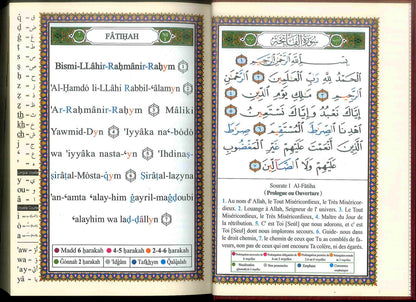 FÂTIḤAH
Bismi-LLâhir-Raḥmânir-Raḥym
'Al-Ḥamdo li-LLâhi Rabbil-ʻâlamyn
'Ar-Raḥmânir-Raḥym Mâliki
Yawmid-Dyn 'Iyyâka naʻ-bodo
wa 'iyyâka nasta-ʻyn 'Ihdinaṣ-
ṣirâṭal-Mosta-qym Ṣirâṭal-lazyna
'an-ʻamta ʻalay-him ġayril-maġḍoubi
ʻalayhim wa laḍ-ḍâllyn
Madd 6 ḥarakah
4-5 ḥarakah
2-4-6 ḥarakah
Ġonnah 2 ḥarakah
'Idġâm
Tafkhym
Qalqalah
سورة الفاتحة
بسم الله الرحمن الرحيم
الحمد لله رب العلمين الرحمن
الرحيم ملك يوم الدين
إياك نعبد وإياك نستعين
اهدنا الصرط المستقيم صرط
الذين أنعمت عليهم غير المغضوب
عليهم ولا الضالين
Sourate 1 Al-Fâtiha
( Prologue ou Ouverture )
1. Au nom d'Allah, le Tout Miséricordieux, le Très
Miséricordieux. 2. Louange à Allah, Seigneur de l'univers. 3. Le Tout
Miséricordieux, le Très Miséricordieux, 4. Maître du Jour de
la rétribution. 5. C'est Toi [Seul] que nous adorons, et c'est
Toi [Seul] dont nous implorons secours. 6. Guide- nous dans
le droit chemin, 7. le chemin de ceux que Tu as comblés de faveurs,
non pas de ceux qui ont encouru Ta colère, ni des égarés.